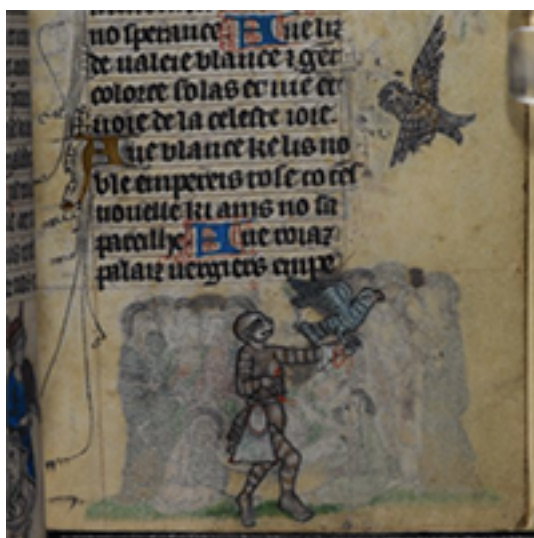 no sperance Aue liz
de ualeie blance z gēt
coloree solas et uie et
uoie de la celeste ioie.
Aue blance ke lis no
ble empereis rose co cel
nouelle ki ains no sā
pareille Aue roiaz
palaiz uergiers empe